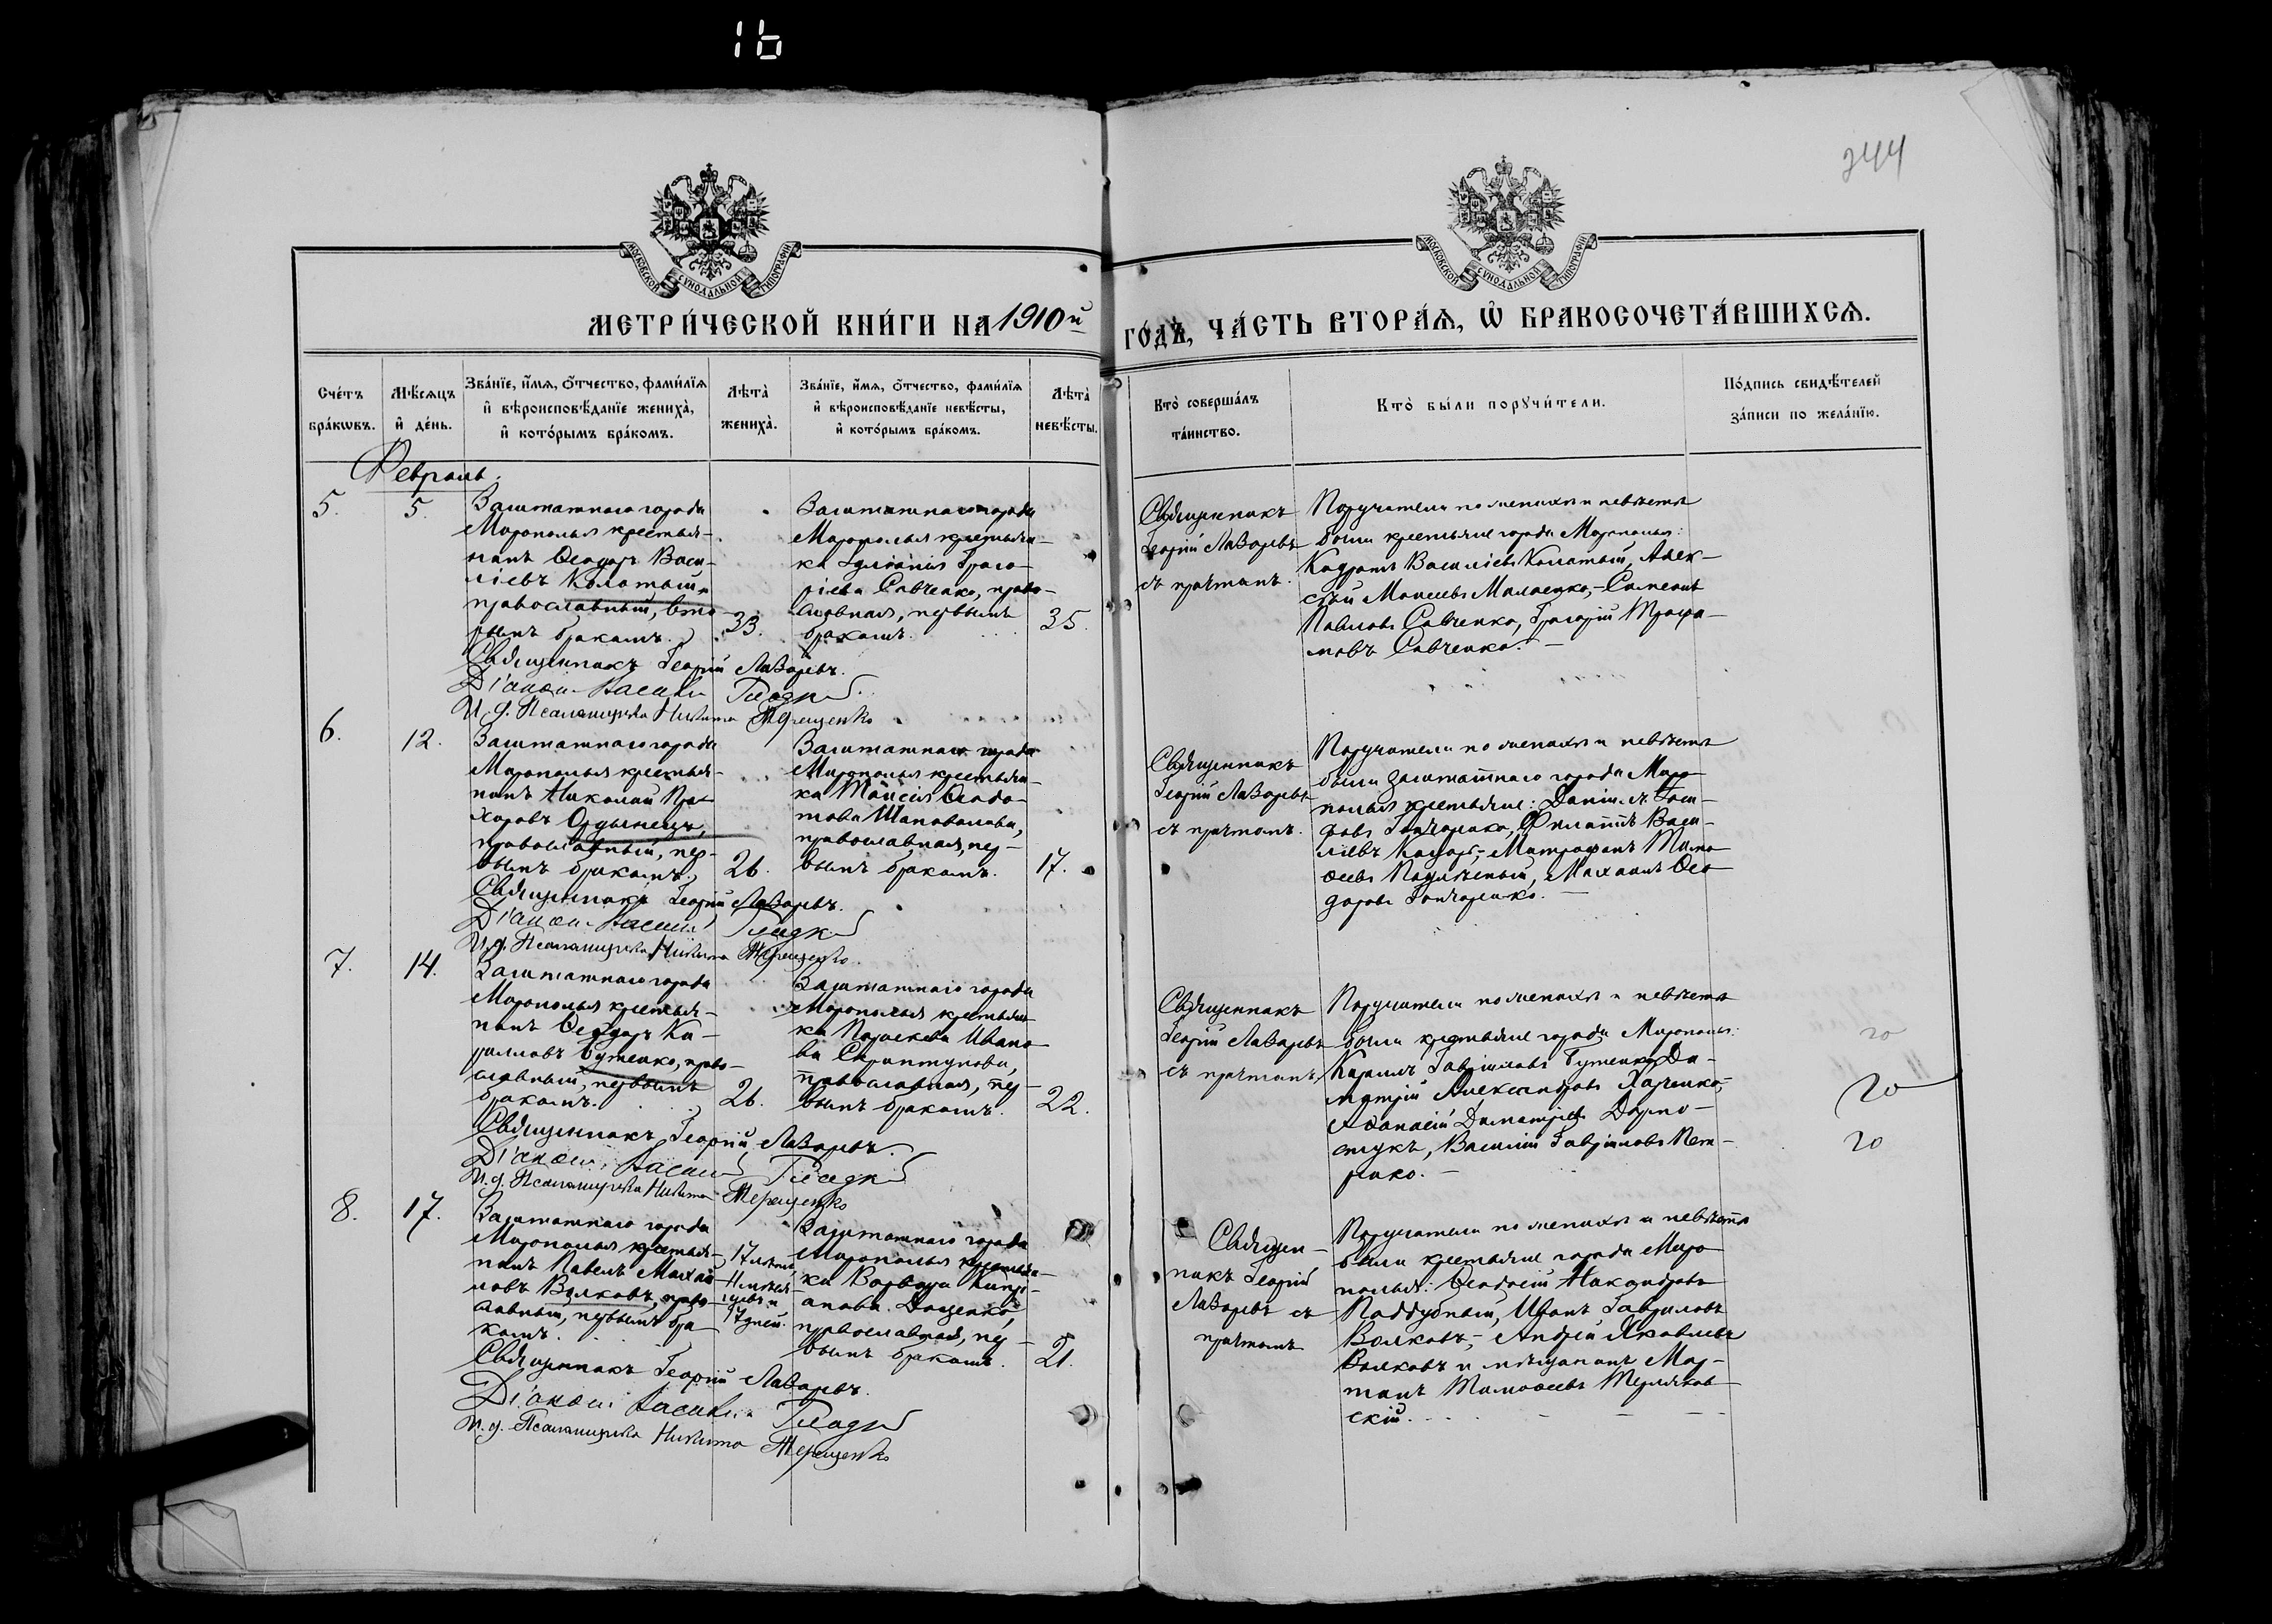 16
244
МОСКОВСКОЙ СѴНОДАЛЬНОЙ ТИПОГРАФІИ
МОСКОВСКОЙ СѴНОДАЛЬНОЙ ТИПОГРАФІИ
МЕТРИ́ЧЕСКОЙ КНИ́ГИ НА 1910й ГО́ДЪ, ЧА́СТЬ ВТОРА́Ѧ, Ѡ҆ БРАКОСОЧЕТА́ВШИХСѦ.
Сче́тъ бра́кѡвъ.
Мѣ́сѧцъ и҆ де́нь.
Зва́нїе, и҆́мѧ, ѻ҆́тчество, фами́лїѧ
и҆ вѣроисповѣ́данїе жениха̀,
и҆ кото́рымъ бра́комъ.
Лѣта̀ жениха̀.
Зва́нїе, и҆́мѧ, ѻ҆́тчество, фами́лїѧ
и҆ вѣроисповѣ́данїе невѣ́сты,
и҆ кото́рымъ бра́комъ.
Лѣта̀ невѣ́сты.
Кто̀ соверша́лъ
та́инство.
Кто̀ бы́ли порꙋчи́тели.
По́дпись свидѣ́телей
за́писи по жела́нїю.
Февраль.
5.
5.
Заштатнаго города
Мирополья крестья-
нинъ Ѳеодоръ Васи-
ліевъ Колотый,
православный, вто-
рымъ бракомъ.
33.
Заштатнаго города
Мирополья крестьян-
ка Григо-
ріева Савченко, право-
славная, первымъ
бракомъ.
35.
Священникъ
Георгій Лазаревъ
съ причтомъ.
Поручители по женихѣ и невѣстѣ
были крестьяне города Мирополья:
Василіевъ Колотый, Алек-
сѣй Моисеевъ Симеонъ
Павловъ Савченко, Григорій Трофи-
мовъ Савченко.
Священникъ Георгій Лазаревъ.
Діаконъ Василій Гладкій
И. д. Псаломщика Никита Терещенко
6.
12.
Заштатнаго города
Мирополья крестья-
нинъ Николай Про-
хоровъ Ордынецъ,
православный, пер-
вымъ бракомъ.
26.
Заштатнаго города
Мирополья крестьян-
ка Таисія Ѳеодо-
това Шаповалова,
православная, пер-
вымъ бракомъ.
17.
Священникъ
Георгій Лазаревъ
съ причтомъ.
Поручители по женихѣ и невѣстѣ
были заштатнаго города Миро-
полья крестьяне: Даніилъ Іоси-
фовъ Гончаренко, Филиппъ Васи-
ліевъ Митрофанъ Тимо-
ѳеевъ Михаилъ Ѳео-
доровъ Гончаренко.
Священникъ Георгій Лазаревъ.
Діаконъ Василій Гладкій
И. д. Псаломщика Никита Терещенко
7.
14.
Заштатнаго города
Мирополья крестья-
нинъ Ѳеодоръ Ки-
рилловъ Бутенко, право-
славный, первымъ
бракомъ.
26.
Заштатнаго города
Мирополья крестьян-
ка Параскева Ивано-
ва Скрипунова,
православная, пер-
вымъ бракомъ.
22.
Священникъ
Георгій Лазаревъ
съ причтомъ.
Поручители по женихѣ и невѣстѣ
были крестьяне города Мирополья:
Кириллъ Гавріиловъ Бутенко, Ди-
митрій Александровъ Харченко,
Аѳанасій Димитріевъ
Василій Гавріиловъ Пет-
ренко.
го
го
го
Священникъ Георгій Лазаревъ.
Діаконъ Василій Гладкій
И. д. Псаломщика Никита Терещенко
8.
17.
Заштатнаго города
Мирополья крестья-
нинъ Павелъ Михаи-
ловъ Волковъ, право-
славный, первымъ бра-
комъ.
17 лѣтъ,
11 мѣся-
цевъ и
17 дней.
Заштатнаго города
Мирополья крестьян-
ка Варвара Кипрі-
анова Доценко,
православная, пер-
вымъ бракомъ.
21.
Священ-
никъ Георгій
Лазаревъ съ
причтомъ
Поручители по женихѣ и невѣстѣ
были крестьяне города Миро-
полья: Ѳеодосій Никандровъ
Поддубный, Иванъ Гавриловъ
Волковъ, Андрей Яковлевъ
Волковъ и мѣщанинъ Мар-
тинъ Тимоѳеевъ
скій.
Священникъ Георгій Лазаревъ.
Діаконъ Василій Гладкій
И. д. Псаломщика Никита Терещенко